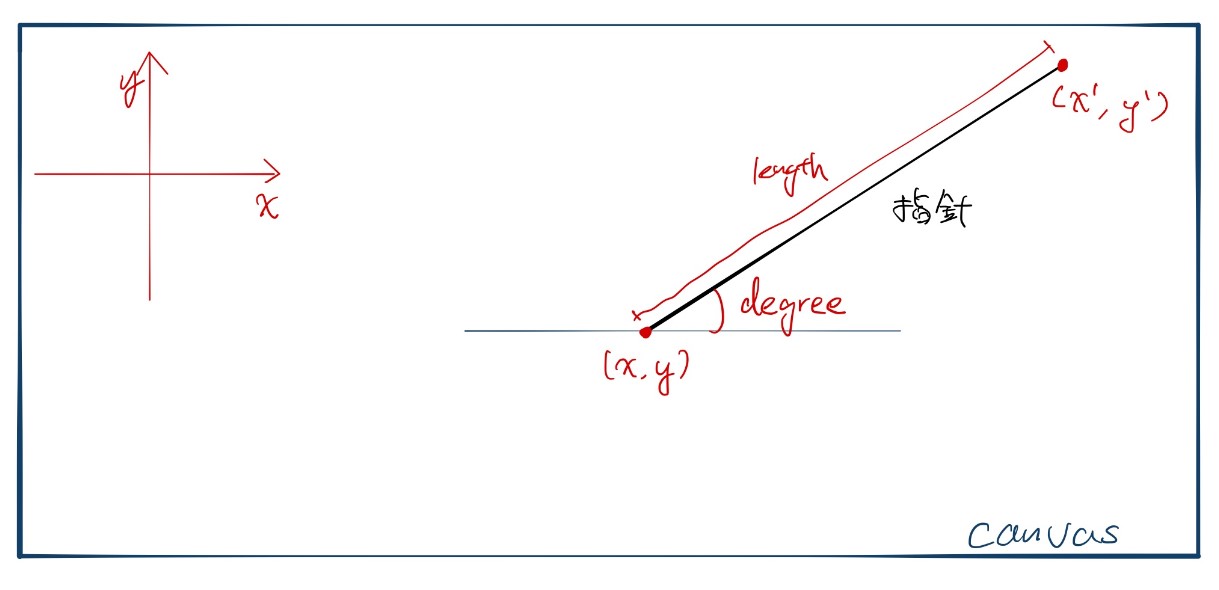 y
x
(x', y')
length
指針
degree
(x, y)
canvas